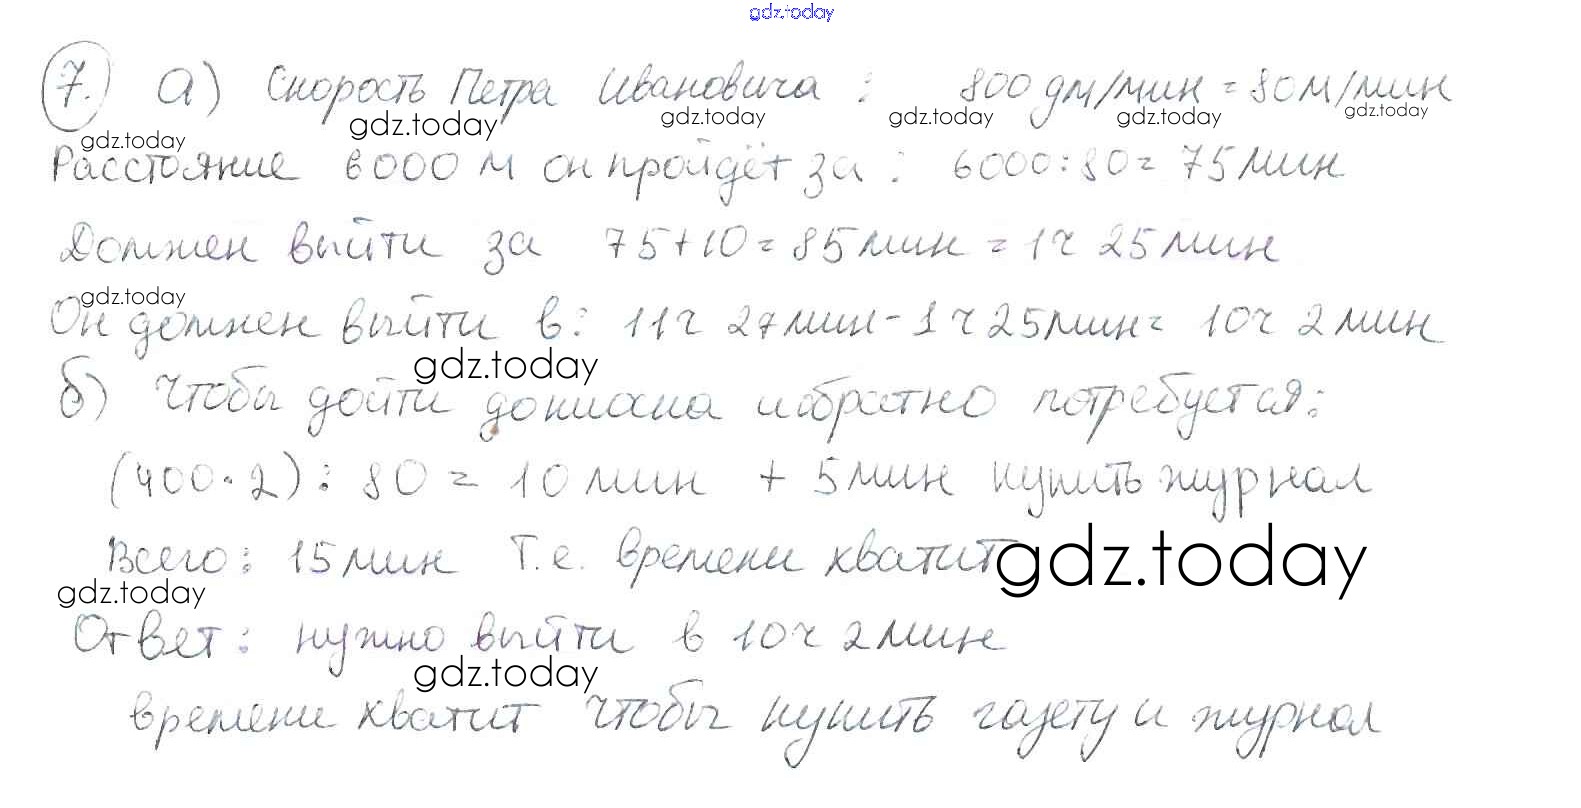 gdz.today
7. а) Скорость Петра Ивановича : 800 дм/мин = 80 м/мин
gdz.today gdz.today gdz.today gdz.today gdz.today gdz.today
Расстояние 6000 м он пройдёт за : 6000:80= 75 мин
Должен выйти за 75+10= 85 мин = 1ч 25 мин
gdz.today
Он должен выйти в: 11ч 27 мин - 1ч 25 мин= 10ч 2 мин
gdz.today
б) Чтобы дойти до киоска и обратно потребуется:
(400·2) : 80 = 10 мин + 5 мин купить журнал
Всего: 15 мин Т.е. времени хватит
gdz.today
gdz.today
Ответ: нужно выйти в 10ч 2 мин
gdz.today
времени хватит чтобы купить газету и журнал